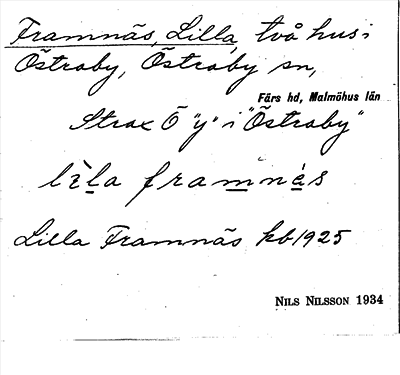 Framnäs, Lilla, två hus i
Östraby, Östraby sn,
Färs hd, Malmöhus län
Strax Ö "y" i "Östraby"
lìla framnès
Lilla Framnäs kb 1925
NILS NILSSON 1934